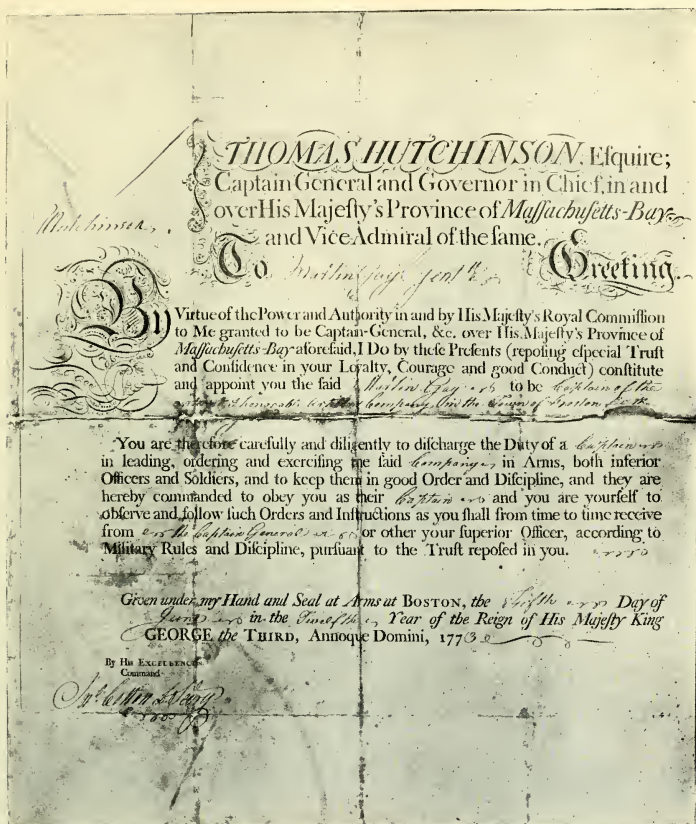 THOMAS HUTCHINSON, Eſquire;
Captain General and Governor in Chief, in and
over His Majeſty's Province of Maſſachuſetts-Bay
Hutchinson.
and Vice Admiral of the ſame.
To Martin Gay Gentn. Greeting.
By Virtue of the Power and Authority in and by His Majeſty's Royal Commiſſion
to Me granted to be Captain-General, &c. over His Majeſty's Province of
Maſſachuſetts-Bay aforeſaid, I Do by theſe Preſents (repoſing eſpecial Truſt
and Confidence in your Loyalty, Courage and good Conduct) conſtitute
and appoint you the ſaid Martin Gay to be Captain of the
Company in the Town of Boston
You are therefore carefully and diligently to diſcharge the Duty of a Captain
in leading, ordering and exerciſing the ſaid Company in Arms, both inferior
Officers and Soldiers, and to keep them in good Order and Diſcipline, and they are
hereby commanded to obey you as their Captain and you are yourſelf to
obſerve and follow ſuch Orders and Inſtructions as you ſhall from time to time receive
from the Captain General or other your ſuperior Officer, according to
Military Rules and Diſcipline, purſuant to the Truſt repoſed in you.
Given under my Hand and Seal at Arms at BOSTON, the Day of
June in the Year of the Reign of His Majeſty King
GEORGE the THIRD, Annoque Domini, 177
By His EXCELLENCY'S
Command